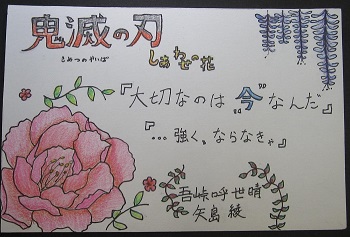 鬼滅の刃
きめつのやいば
しあわせの花
『大切なのは"今"なんだ』
『…強く、ならなきゃ』
吾峠呼世晴
矢島 綾